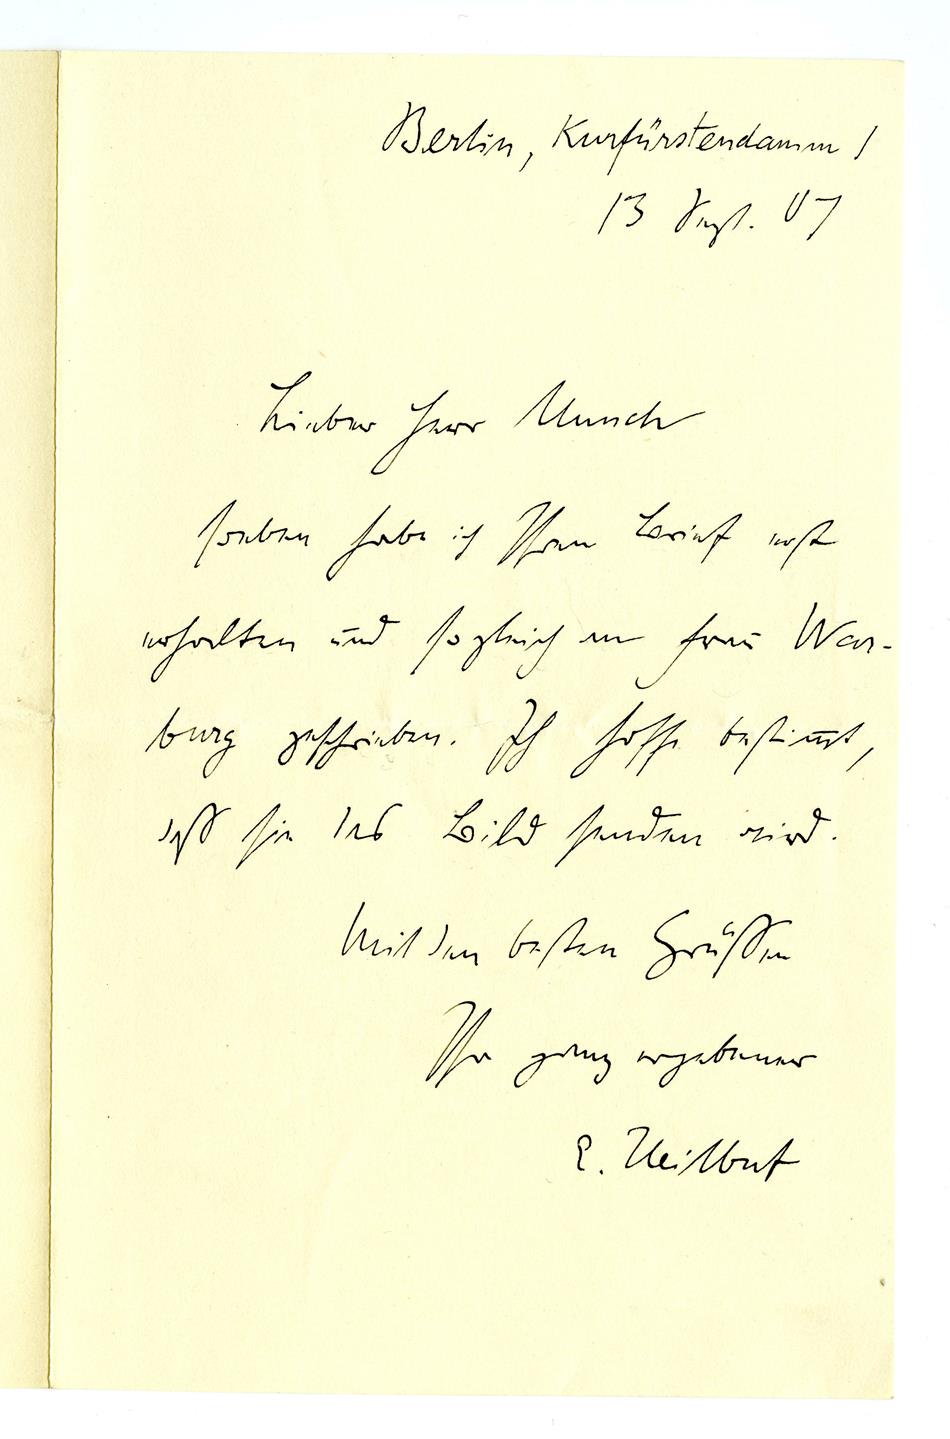 Berlin, Kurfürstendamm 1
13 Sept. 07
Lieber Herr Munch
soeben habe ich Ihren Brief erst
erhalten und sogleich an Frau War-
burg geschrieben. Ich hoffe bestim̅t,
daß sie das Bild senden wird.
Mit den besten Grüßen
Ihr ganz ergebener
E. Heilbut